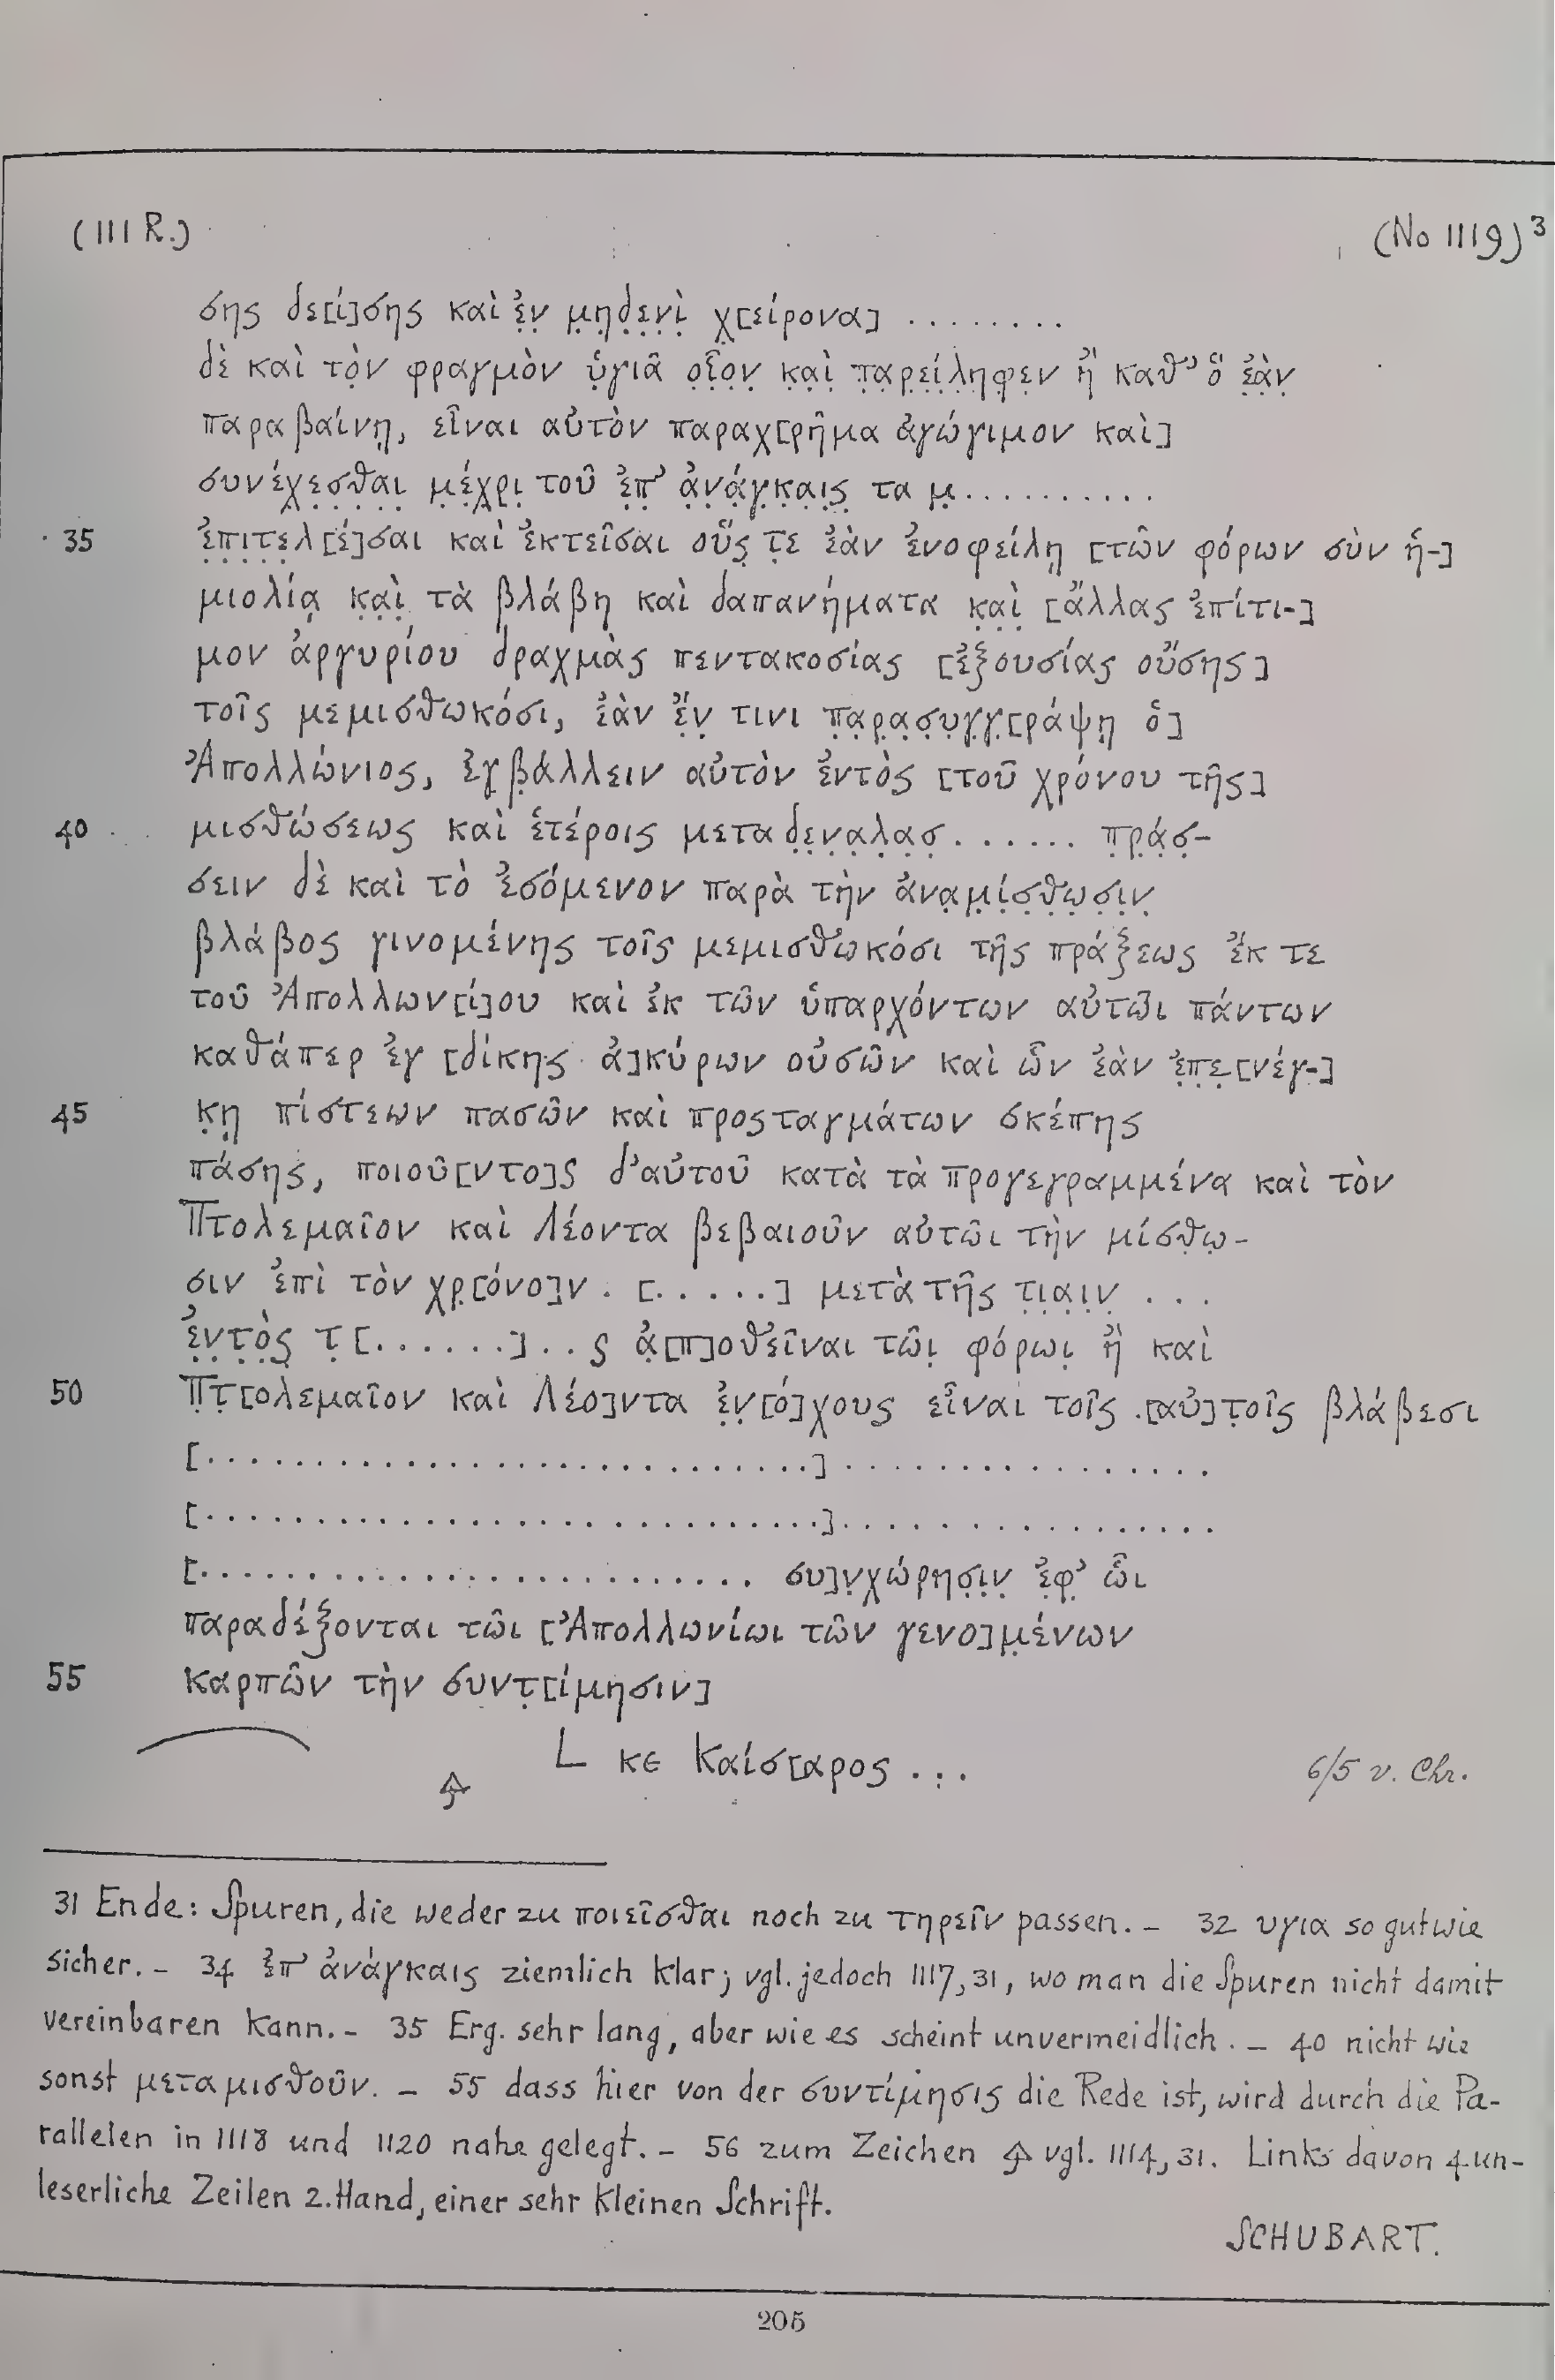 (III R.) (No 1119)³
σης δε[ί]σης καὶ ἐ̣ν̣ μ̣η̣δ̣ε̣ν̣ὶ̣ χ̣[είρονα] ........
δὲ καὶ τὸ̣ν φραγμὸν ὑ̣γιᾶ ο̣ἷ̣ο̣ν̣ κ̣α̣ὶ̣ π̣α̣ρ̣ε̣ί̣λ̣η̣φ̣ε̣ν ἢ καθ' ὃ ἐ̣ὰ̣ν̣
παραβαίνῃ, εἶναι αὐτὸν παραχ[ρῆμα ἀγώγιμον καὶ]
συνέχ̣ε̣σ̣θ̣α̣ι̣ μ̣έ̣χ̣ρ̣ι̣ τοῦ ἐ̣π̣' ἀ̣ν̣ά̣γ̣κ̣α̣ι̣ς̣ τα μ̣..........
35 ἐ̣π̣ι̣τ̣ε̣λ̣[έ]σαι καὶ ἐκτεῖσαι οὕς̣ τ̣ε ἐὰν ἐνοφείλῃ [τῶν φόρων σὺν ἡ-]
μιολίᾳ κ̣α̣ὶ̣ τὰ βλάβη καὶ δαπανήματα κ̣α̣ὶ̣ [ἄλλας ἐπίτι-]
μον ἀργυρίου δραχμὰς πεντακοσίας [ἐξουσίας οὔσης]
τοῖς μεμισθωκόσι, ἐὰν ἔ̣ν̣ τινι π̣α̣ρ̣α̣σ̣υ̣γ̣γ̣[ράψῃ ὁ]
Ἀπολλώνιος, ἐγ̣β̣άλλειν αὐτὸν ἐντὸς [τοῦ χρόνου τῆς]
40 μισθώσεως καὶ ἑτέροις μετα δ̣ε̣ν̣α̣λ̣α̣σ̣...... π̣ρ̣ά̣σ̣-
σειν δὲ καὶ τὸ ἐσόμενον παρὰ τὴν ἀνα̣μ̣ί̣σ̣θ̣ω̣σ̣ι̣ν̣
βλάβος γινομένης τοῖς μεμισθωκόσι τῆς πράξεως ἔκ τε
τοῦ Ἀπολλων[ί]ου καὶ ἐκ τῶν ὑπαρχόντων αὐτῶι πάντων
καθάπερ ἐγ [δίκης ἀ]κύρων οὐσῶν καὶ ὧν ἐὰν ἐ̣π̣ε̣[νέγ-]
45 κ̣ῃ πίστεων πασῶν καὶ προςταγμάτων σκέπης
πάσης, ποιοῦ[ντο]ς δ'αὐτοῦ κατὰ τὰ προγεγραμμένα καὶ τὸν
Πτολεμαῖον καὶ Λέοντα βεβαιοῦν αὐτῶι τὴν μίσθ̣ω̣-
σιν ἐπὶ τὸν χρ̣[όνο]ν . [.....] μετὰ τῆς τ̣ι̣α̣ι̣ν̣ ...
ἐ̣ν̣τ̣ὸ̣ς̣ τ̣[.......]..ς ἀ̣[π]οθεῖναι τῶι̣ φόρωι̣ ἢ καὶ
50 Π̣τ̣[ολεμαῖον καὶ Λέο]ντα ἐ̣ν̣[ό]χους εἶναι τοῖς .[αὐ]τ̣οῖς βλάβεσι
[............................].................
[.............................].................
[......................... συ]ν̣χώρησ̣ι̣ν̣ ἐφ̣' ὧι
παραδέξονται τῶι [Ἀπολλωνίωι τῶν γενο]μ̣ένων
55 καρπῶν τὴν συντ̣[ίμησιν]
L κε Καίσ[αρος ... 6/5 v. Chr.
31 Ende: Spuren, die weder zu ποιεῖσθαι noch zu τηρεῖν passen. – 32 υγια so gut wie
sicher. – 34 ἐπ' ἀνάγκαις ziemlich klar; vgl. jedoch 1117,31, wo man die Spuren nicht damit
vereinbaren kann. – 35 Erg. sehr lang, aber wie es scheint unvermeidlich. – 40 nicht wie
sonst μεταμισθοῦν. – 55 dass hier von der συντίμησις die Rede ist, wird durch die Pa-
rallelen in 1118 und 1120 nahe gelegt. – 56 zum Zeichen vgl. 1114,31. Links davon 4 un-
leserliche Zeilen 2. Hand, einer sehr kleinen Schrift.
SCHUBART.
205